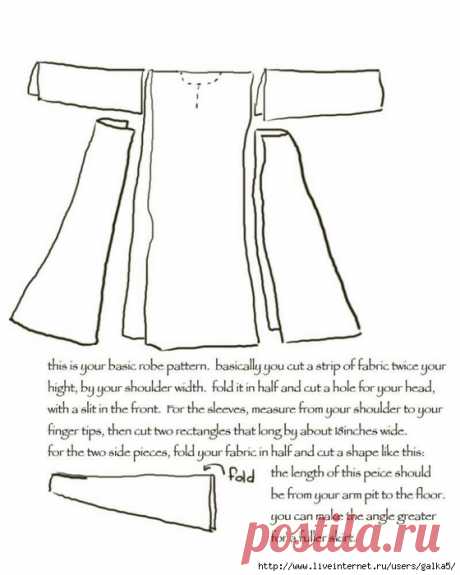 this is your basic robe pattern. basically you cut a strip of fabric twice your
hight, by your shoulder width. fold it in half and cut a hole for your head,
with a slit in the front. For the sleeves, measure from your shoulder to your
finger tips, then cut two rectangles that long by about 18inches wide.
for the two side pieces, fold your fabric in half and cut a shape like this:
fold
the length of this peice should
be from your arm pit to the floor.
you can make the angle greater
for a fuller skirt.
postila.ru
http://www.liveinternet.ru/users/galka5/